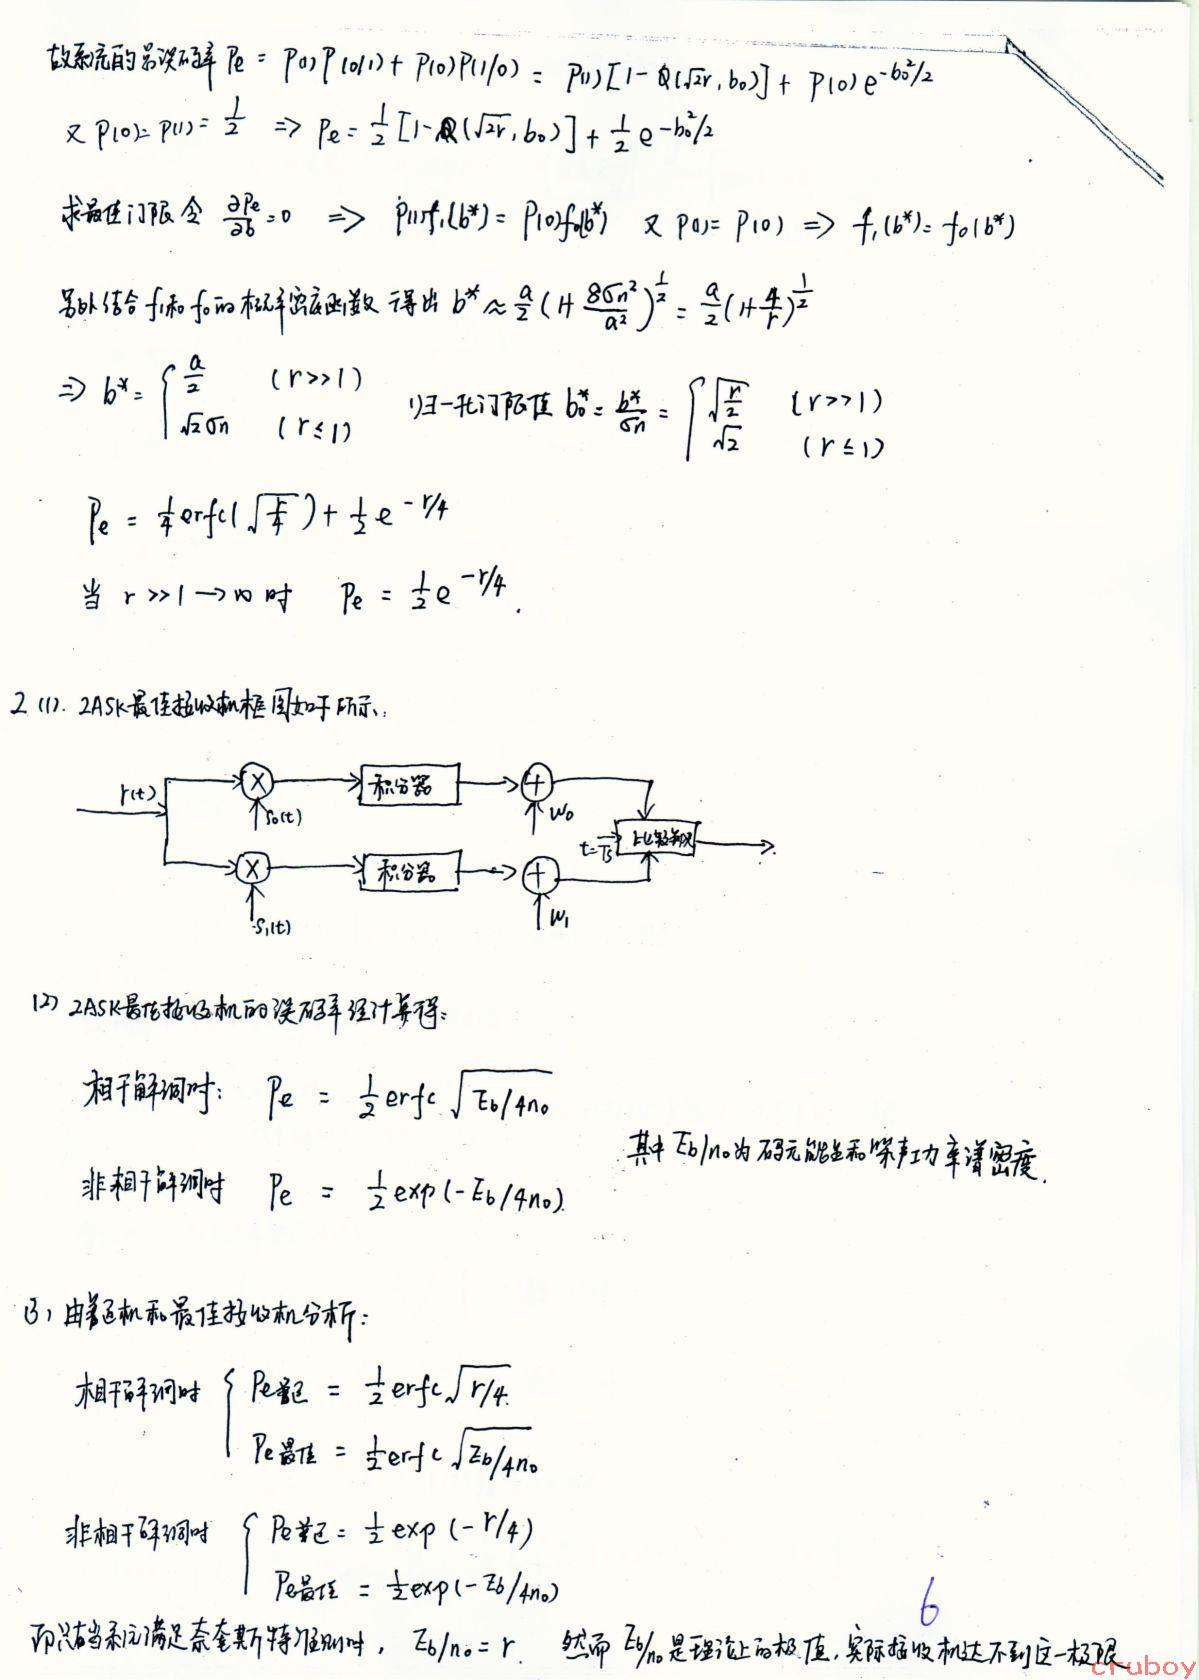 故系统的总误码率 Pe = P(1)P(0/1) + P(0)P(1/0) = P(1)[1-Q(√2r, b₀)] + P(0)e^(-b₀²/2)
又 P(0)=P(1)=1/2 ⇒ Pe = 1/2[1-Q(√2r, b₀)] + 1/2 e^(-b₀²/2)
求最佳门限 令 ∂Pe/∂b=0 ⇒ P(1)f₁(b*) = P(0)f₀(b*) 又 P(1)=P(0) ⇒ f₁(b*)=f₀(b*)
另外结合f₁和f₀的概率密度函数 得出 b* ≈ a/2(1+8σn²/a²)^(1/2) = a/2(1+4/r)^(1/2)
⇒ b* = { a/2 (r>>1) ; √2σn (r≤1) 归一化门限值 b₀* = b*/σn = { √(r/2) (r>>1) ; √2 (r≤1)
Pe = 1/4 erfc(√(r/4)) + 1/2 e^(-r/4)
当 r>>1→∞时 Pe = 1/2 e^(-r/4).
2 (1). 2ASK最佳接收机框图如下所示:
r(t)
×
S₀(t)
积分器
+
W₀
t=Ts
比较判决
×
S₁(t)
积分器
+
W₁
(2) 2ASK最佳接收机的误码率经计算得:
相干解调时: Pe = 1/2 erfc √(Eb/4n₀)
其中 Eb/n₀为码元能量和噪声功率谱密度.
非相干解调时 Pe = 1/2 exp(-Eb/4n₀).
(3) 由普通机和最佳接收机分析:
相干解调时 { Pe普通 = 1/2 erfc √(r/4).
Pe最佳 = 1/2 erfc √(Eb/4n₀)
非相干解调时 { Pe普通 = 1/2 exp(-r/4)
Pe最佳 = 1/2 exp(-Eb/4n₀)
而只有当系统满足奈奎斯特准则时, Eb/n₀ = r. 然而 Eb/n₀是理论上的极值, 实际接收机达不到这一极限
6
cruboy